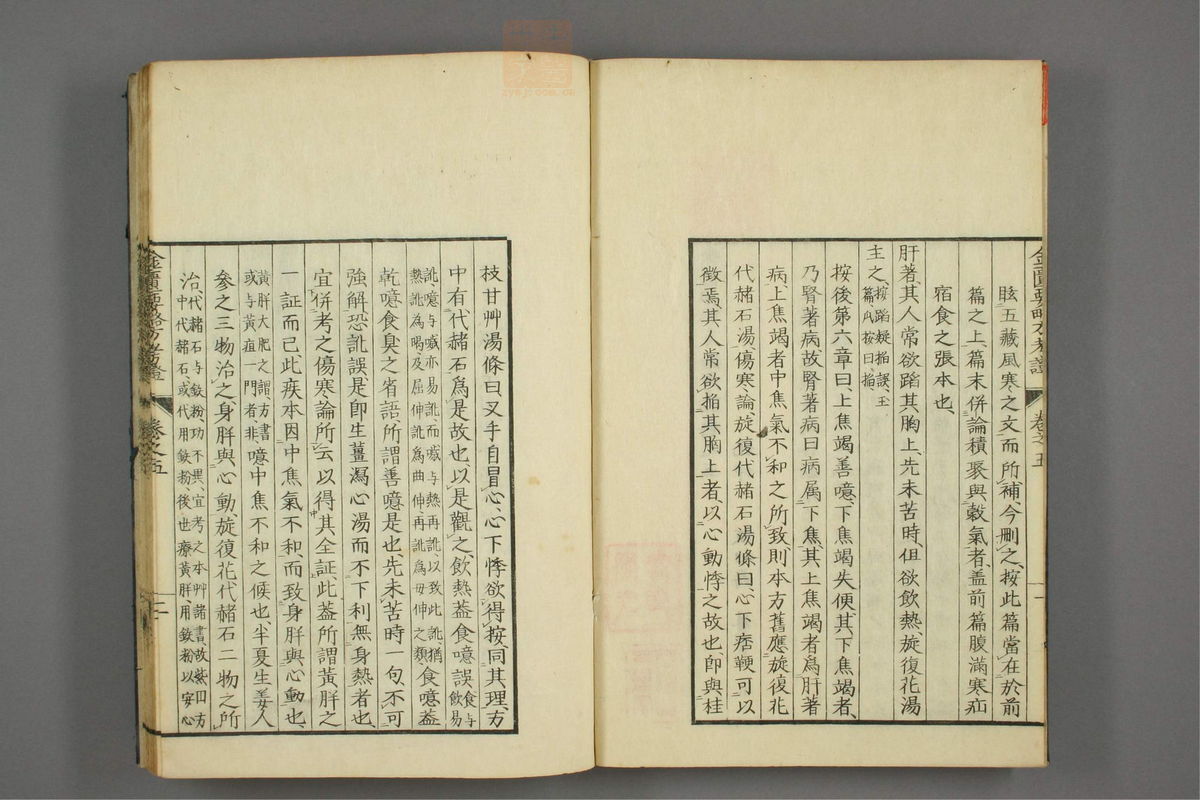 眩五藏風寒之文而所補、今刪之、按此篇當在於前
篇之上、篇末併論積聚與穀氣者、蓋前篇腹滿寒疝
宿食之張本也、
肝著、其人常欲蹈其胸上、先未苦時但欲飲熱、旋復花湯
主之、按蹈疑掐誤、玉
篇爪按曰掐
按後第六章曰、上焦竭善噫、下焦竭失便、其下焦竭者、
乃腎著病、故腎著病曰病属下焦、其上焦竭者爲肝著
病、上焦竭者中焦氣不和之所致、則本方舊應旋復花
代赭石湯、傷寒論、旋復代赭石湯條曰、心下痞鞕可以
徵焉、其人常欲掐其胸上者、以心動悸之故也、卽與桂
枝甘艸湯條曰叉手自冒心、心下悸欲得按、同其理、方
中有代赭石爲是故也、以是觀之飲熱蓋食噫誤、食與
飲易
訛、噫与喊亦易訛、而喊与熱再訛、以致此訛、猶
熱訛為喝、及屈伸訛為曲伸、再訛為毋伸之類、食噫蓋
乾噫食臭之省語、所謂善噫是也、先未苦時一句、不可
強解、恐訛誤、是卽生薑瀉心湯而不下利無身熱者也、
宜併考之傷寒論所云以得其全証、此蓋所謂黃胖之
一証而已、此疾本因中焦氣不和、而致身胖與心動也、
黃胖大肥之謂、方書
或与黃疸一門者、非、噫中焦不和之候也、半夏生姜人
參之三物治之、身胖與心動、旋復花代赭石二物之所
治、代赭石与鉄粉、功不異、宜考之本艸諸書、故紫円方
中代赭石、或代用鉄粉、後世療黃胖用鉄粉以安心
金匱要略方考證
卷之五
一
金匱要略方考證
卷之五
二
zysj.com.cn